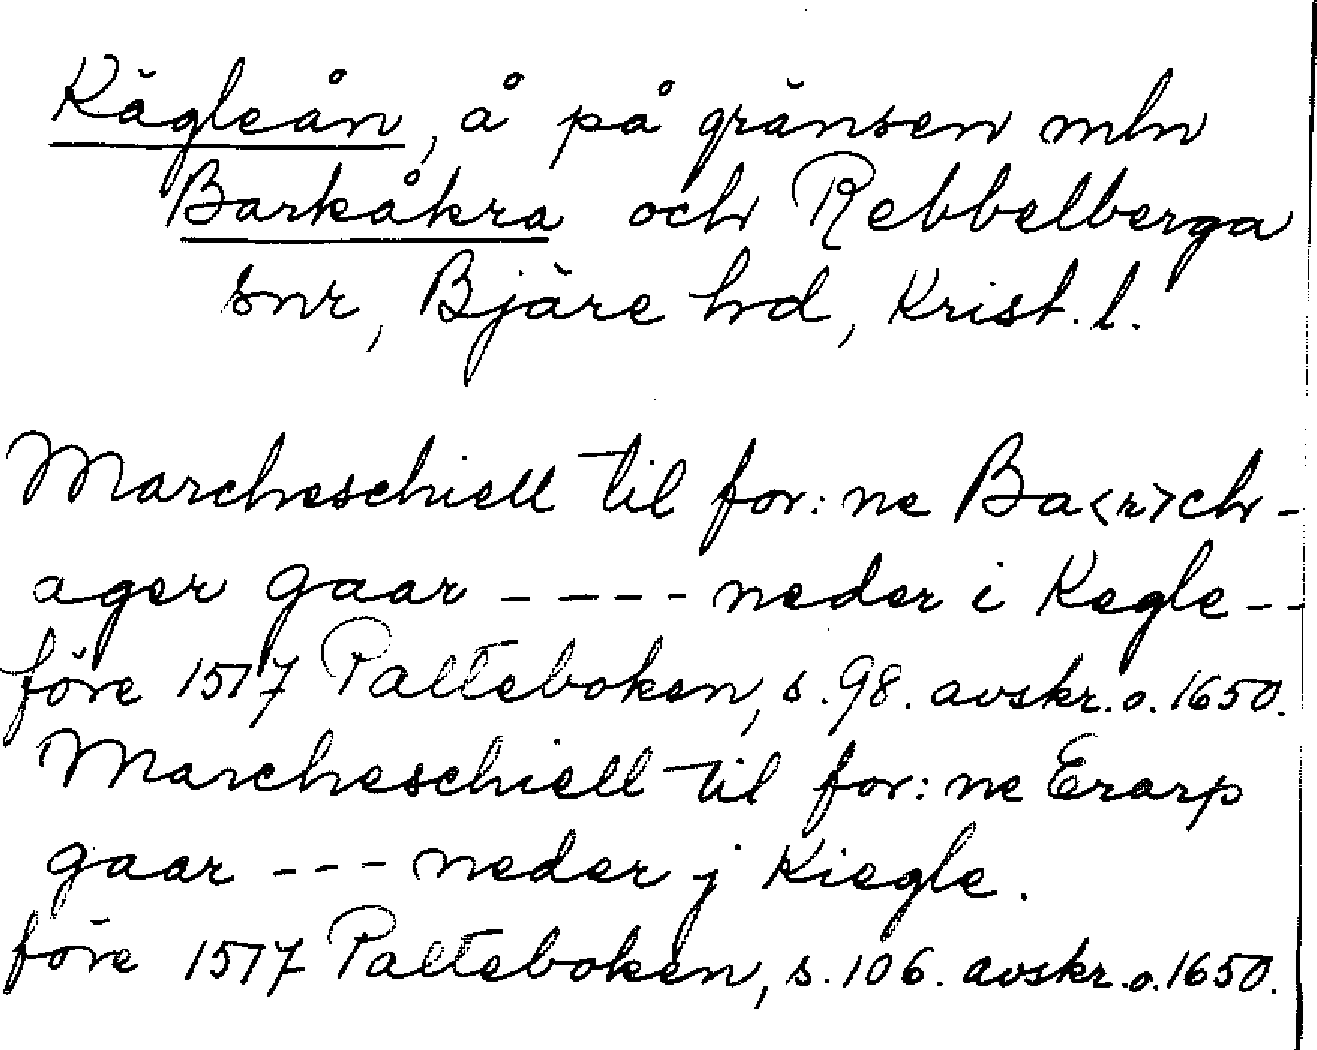 Kägleån, å på gränsen mln
Barkåkra och Rebbelberga
snr, Bjäre hd, Krist. l.
Marcheschiell til for: ne Ba<r>ch-
ager gaar ---- neder i Kegle--
före 1517 Palteboken, s. 98. avskr. o. 1650.
Marcheschiell til for: ne Erarp
gaar --- neder j Kiegle.
före 1517 Palteboken, s. 106. avskr. o. 1650.